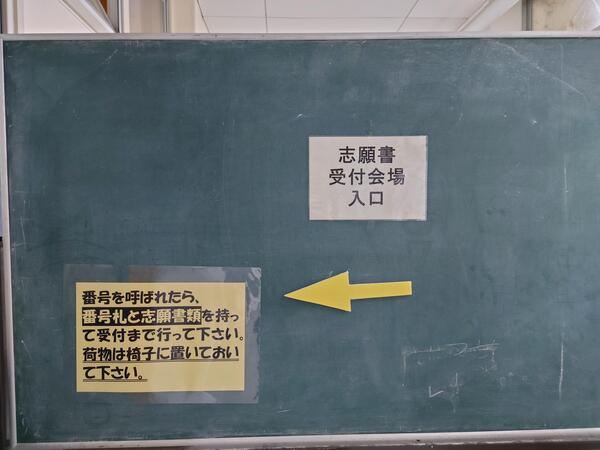 志願書
受付会場
入口
番号を呼ばれたら、
番号札と志願書類を持っ
て受付まで行って下さい。
荷物は椅子に置いておい
て下さい。